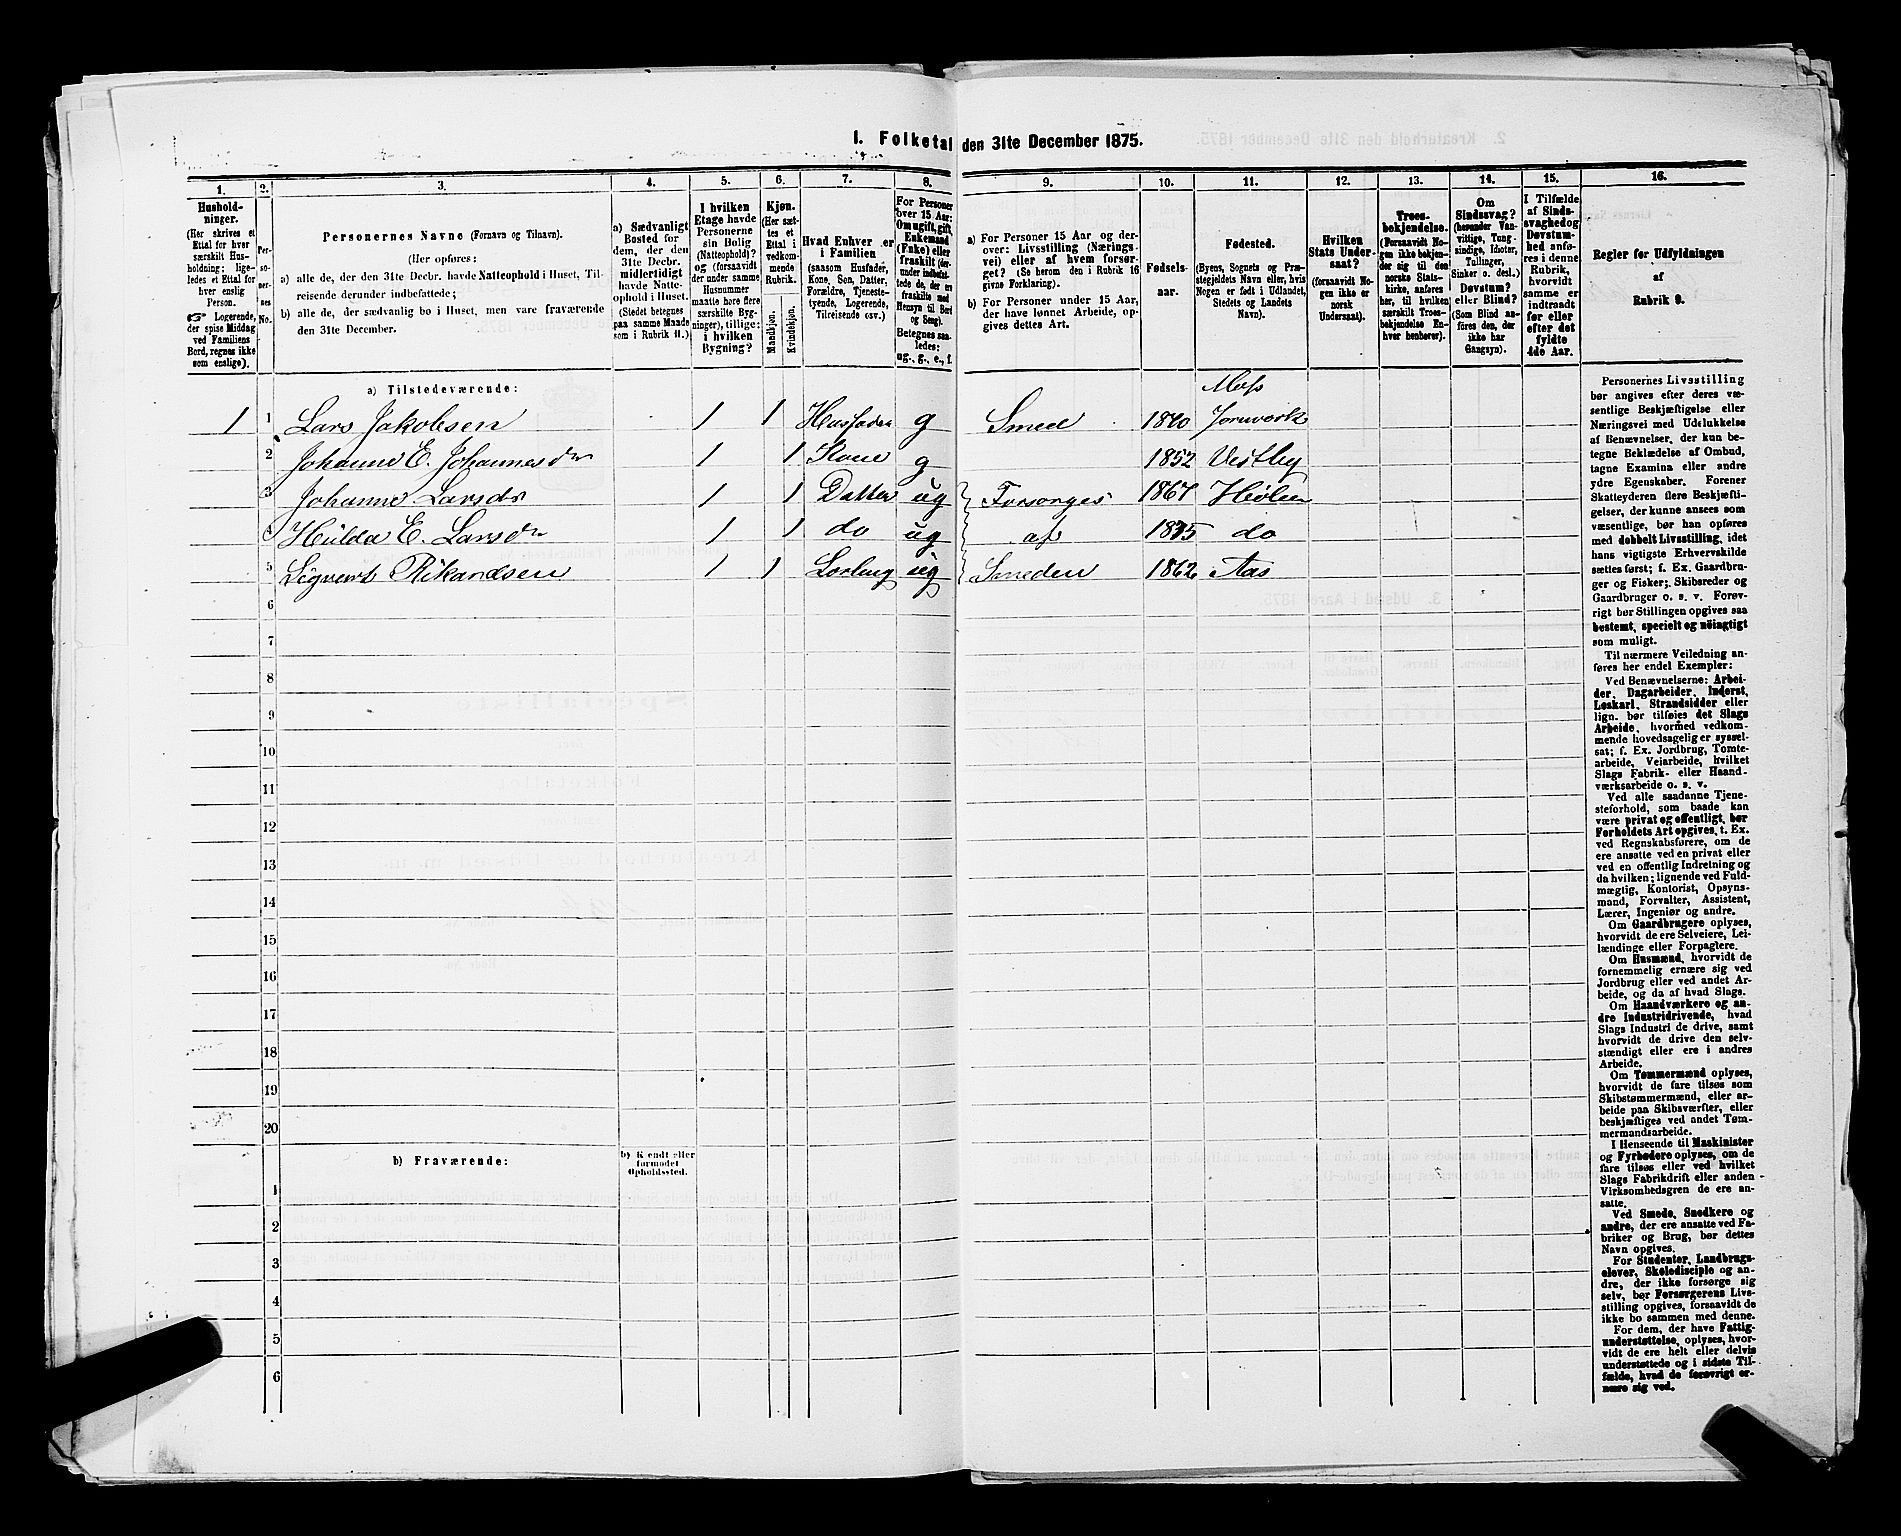 I. Folketal den 31te December 1875.
1. 2. 3. 4. 5. 6. 7. 8. 9. 10. 11. 12. 13. 14. 15. 16.
Hushold-
ninger.
(Her skrives et
Ettal for hver
særskilt Hus-
holdning; lige-
ledes et Ettal for
hver enslig
Person.
☞ Logerende,
der spise Middag
ved Familiens
Bord, regnes ikke
som enslige).
Per-
so-
ner-
nes
No.
Personernes Navne (Fornavn og Tilnavn).
(Her opføres:
a) alle de, der den 31te Decbr. havde Natteophold i Huset, Til-
reisende derunder indbefattede;
b) alle de, der sædvanlig bo i Huset, men vare fraværende
den 31te December.
a) Sædvanligt
Bosted for
dem, der den
31te Decbr.
midlertidigt
havde Natte-
ophold i Huset.
(Stedet betegnes
paa samme Maade
som i Rubrik 11.)
I hvilken
Etage havde
Personerne
sin Bolig
(Natteophold)?
og (forsaavidt
der under samme
Husnummer
maatte høre flere
særskilte Byg-
ninger), tillige:
i hvilken
Bygning?
Kjøn.
(Her sæt-
tes et
Ettal i
vedkom-
mende
Rubrik.
Mandkjøn.
Kvindekjøn.
Hvad Enhver er
i Familien
(saasom Husfader,
Kone, Søn, Datter,
Forældre, Tjeneste-
tyende, Logerende,
Tilreisende osv.)
For Personer
over 15 Aar:
Om ugift, gift,
Enkemand
(Enke) eller
fraskilt (der-
under indbefat-
tede de, der ere
fraskilte med
Hensyn til Bord
og Seng).
Betegnes saa-
ledes:
ug., g., e., f.
a) For Personer 15 Aar og der-
over: Livsstilling (Nærings-
vei) eller af hvem forsør-
get? (Se herom den i Rubrik 16
givne Forklaring).
b) For Personer under 15 Aar,
der have lønnet Arbeide, op-
gives dettes Art.
Fødsels-
aar.
Fødested.
(Byens, Sognets og Præ-
stegjeldets Navn eller, hvis
Nogen er født i Udlandet,
Stedets og Landets
Navn).
Hvilken
Stats Under-
saat?
(forsaavidt No-
gen ikke er
norsk
Undersaat).
Troes-
bekjendelse.
(Forsaavidt No-
gen ikke bekjen-
der sig til den
norske Stats-
kirke, anføres
her, til hvilken
særskilt Troes-
bekjendelse En-
hver henhører).
Om
Sindssvag?
(herunder Van-
vittige, Tung-
sindige, Idioter,
Tullinger,
Sinker o. desl.)
Døvstum?
eller Blind?
(Som Blind an-
føres den, der
ikke har
Gangsyn).
I Tilfælde
af Sinds-
svaghed og
Døvstum-
hed anfø-
res i denne
Rubrik,
hvorvidt
samme er
indtraadt
før eller
efter det
fyldte
4de Aar.
Regler for Udfyldningen
af
Rubrik 9.
a) Tilstedeværende:
Moss
1 1 Lars Jakobsen 1 1 Husfader g Smed 1840 Jernverk
2 Johanne E. Johannesdr 1 1 Kone g 1852 Vestby
3 Johanne Larsdr 1 1 Datter ug Forsørges 1867 Hvilen
4 Hulda E. Larsdr 1 1 do ug af 1875 do
5 Sigvart Rikardsen 1 1 Losling ug Smeden 1862 Aas
6
7
8
9
10
11
12
13
14
15
16
17
18
19
20
b) Fraværende:
b) Kjendt eller
formodet
Opholdssted.
1
2
3
4
5
6
Personernes Livsstilling
bør angives efter deres væ-
sentlige Beskjæftigelse eller
Næringsvei med Udelukkelse
af Benævnelser, der kun be-
tegne Beklædelse af Ombud,
tagne Examina eller andre
ydre Egenskaber. Forener
Skatteyderen flere Beskjæfti-
gelser, der kunne ansees som
væsentlige, bør han opføres
med dobbelt Livsstilling, idet
hans vigtigste Erhvervskilde
sættes først; f. Ex. Gaardbru-
ger og Fisker; Skibsreder og
Gaardbruger o. s. v. Forøv-
rigt bør Stillingen opgives saa
bestemt, specielt og nøiagtigt
som muligt.
Til nærmere Veiledning an-
føres her endel Exempler:
Ved Benævnelserne: Arbei-
der, Dagarbeider, Inderst,
Løskarl, Strandsidder eller
lign. bør tilføies det Slags
Arbeide, hvormed vedkom-
mende hovedsagelig er syssel-
sat; f. Ex. Jordbrug, Tomte-
arbeide, Veiarbeide, hvilket
Slags Fabrik- eller Haand-
værksarbeide o. s. v.
Ved alle saadanne Tjene-
steforhold, som baade kan
være privat og offentligt, bør
Forholdets Art opgives, t. Ex.
ved Regnskabsførere, om de
ere ansatte ved en privat eller
ved en offentlig Indretning og
da hvilken; lignende ved Fuld-
mægtig, Kontorist, Opsyns-
mand, Forvalter, Assistent,
Lærer, Ingeniør og andre.
Om Gaardbrugere oplyses,
hvorvidt de ere Selveiere, Lei-
lændinge eller Forpagtere.
Om Husmænd, hvorvidt de
fornemmelig ernære sig ved
Jordbrug eller ved andet Ar-
beide, og da af hvad Slags.
Om Haandværkere og an-
dre Industridrivende, hvad
Slags Industri de drive, samt
hvorvidt de drive den selv-
stændigt eller ere i andres
Arbeide.
Om Tømmermænd oplyses,
hvorvidt de fare tilsøs som
Skibstømmermænd, eller ar-
beide paa Skibsværfter, eller
beskjæftiges ved andet Tøm-
mermandsarbeide.
I Henseende til Maskinister
og Fyrbødere oplyses, om de
fare tilsøs eller ved hvilket
Slags Fabrikdrift eller anden
Virksomhedsgren de ere an-
satte.
Ved Smede, Snedkere og
andre, der ere ansatte ved Fa-
briker og Brug, bør dettes
Navn opgives.
For Studenter, Landbrugs-
elever, Skoledisciple og an-
dre, der ikke forsørge sig
selv, bør Forsørgerens Livs-
stilling opgives, forsaavidt de
ikke bo sammen med denne.
For dem, der have Fattig-
understøttelse, oplyses, hvor-
vidt de ere helt eller delvis
understøttede og i sidste Til-
fælde, hvad de forøvrigt er-
nære sig ved.